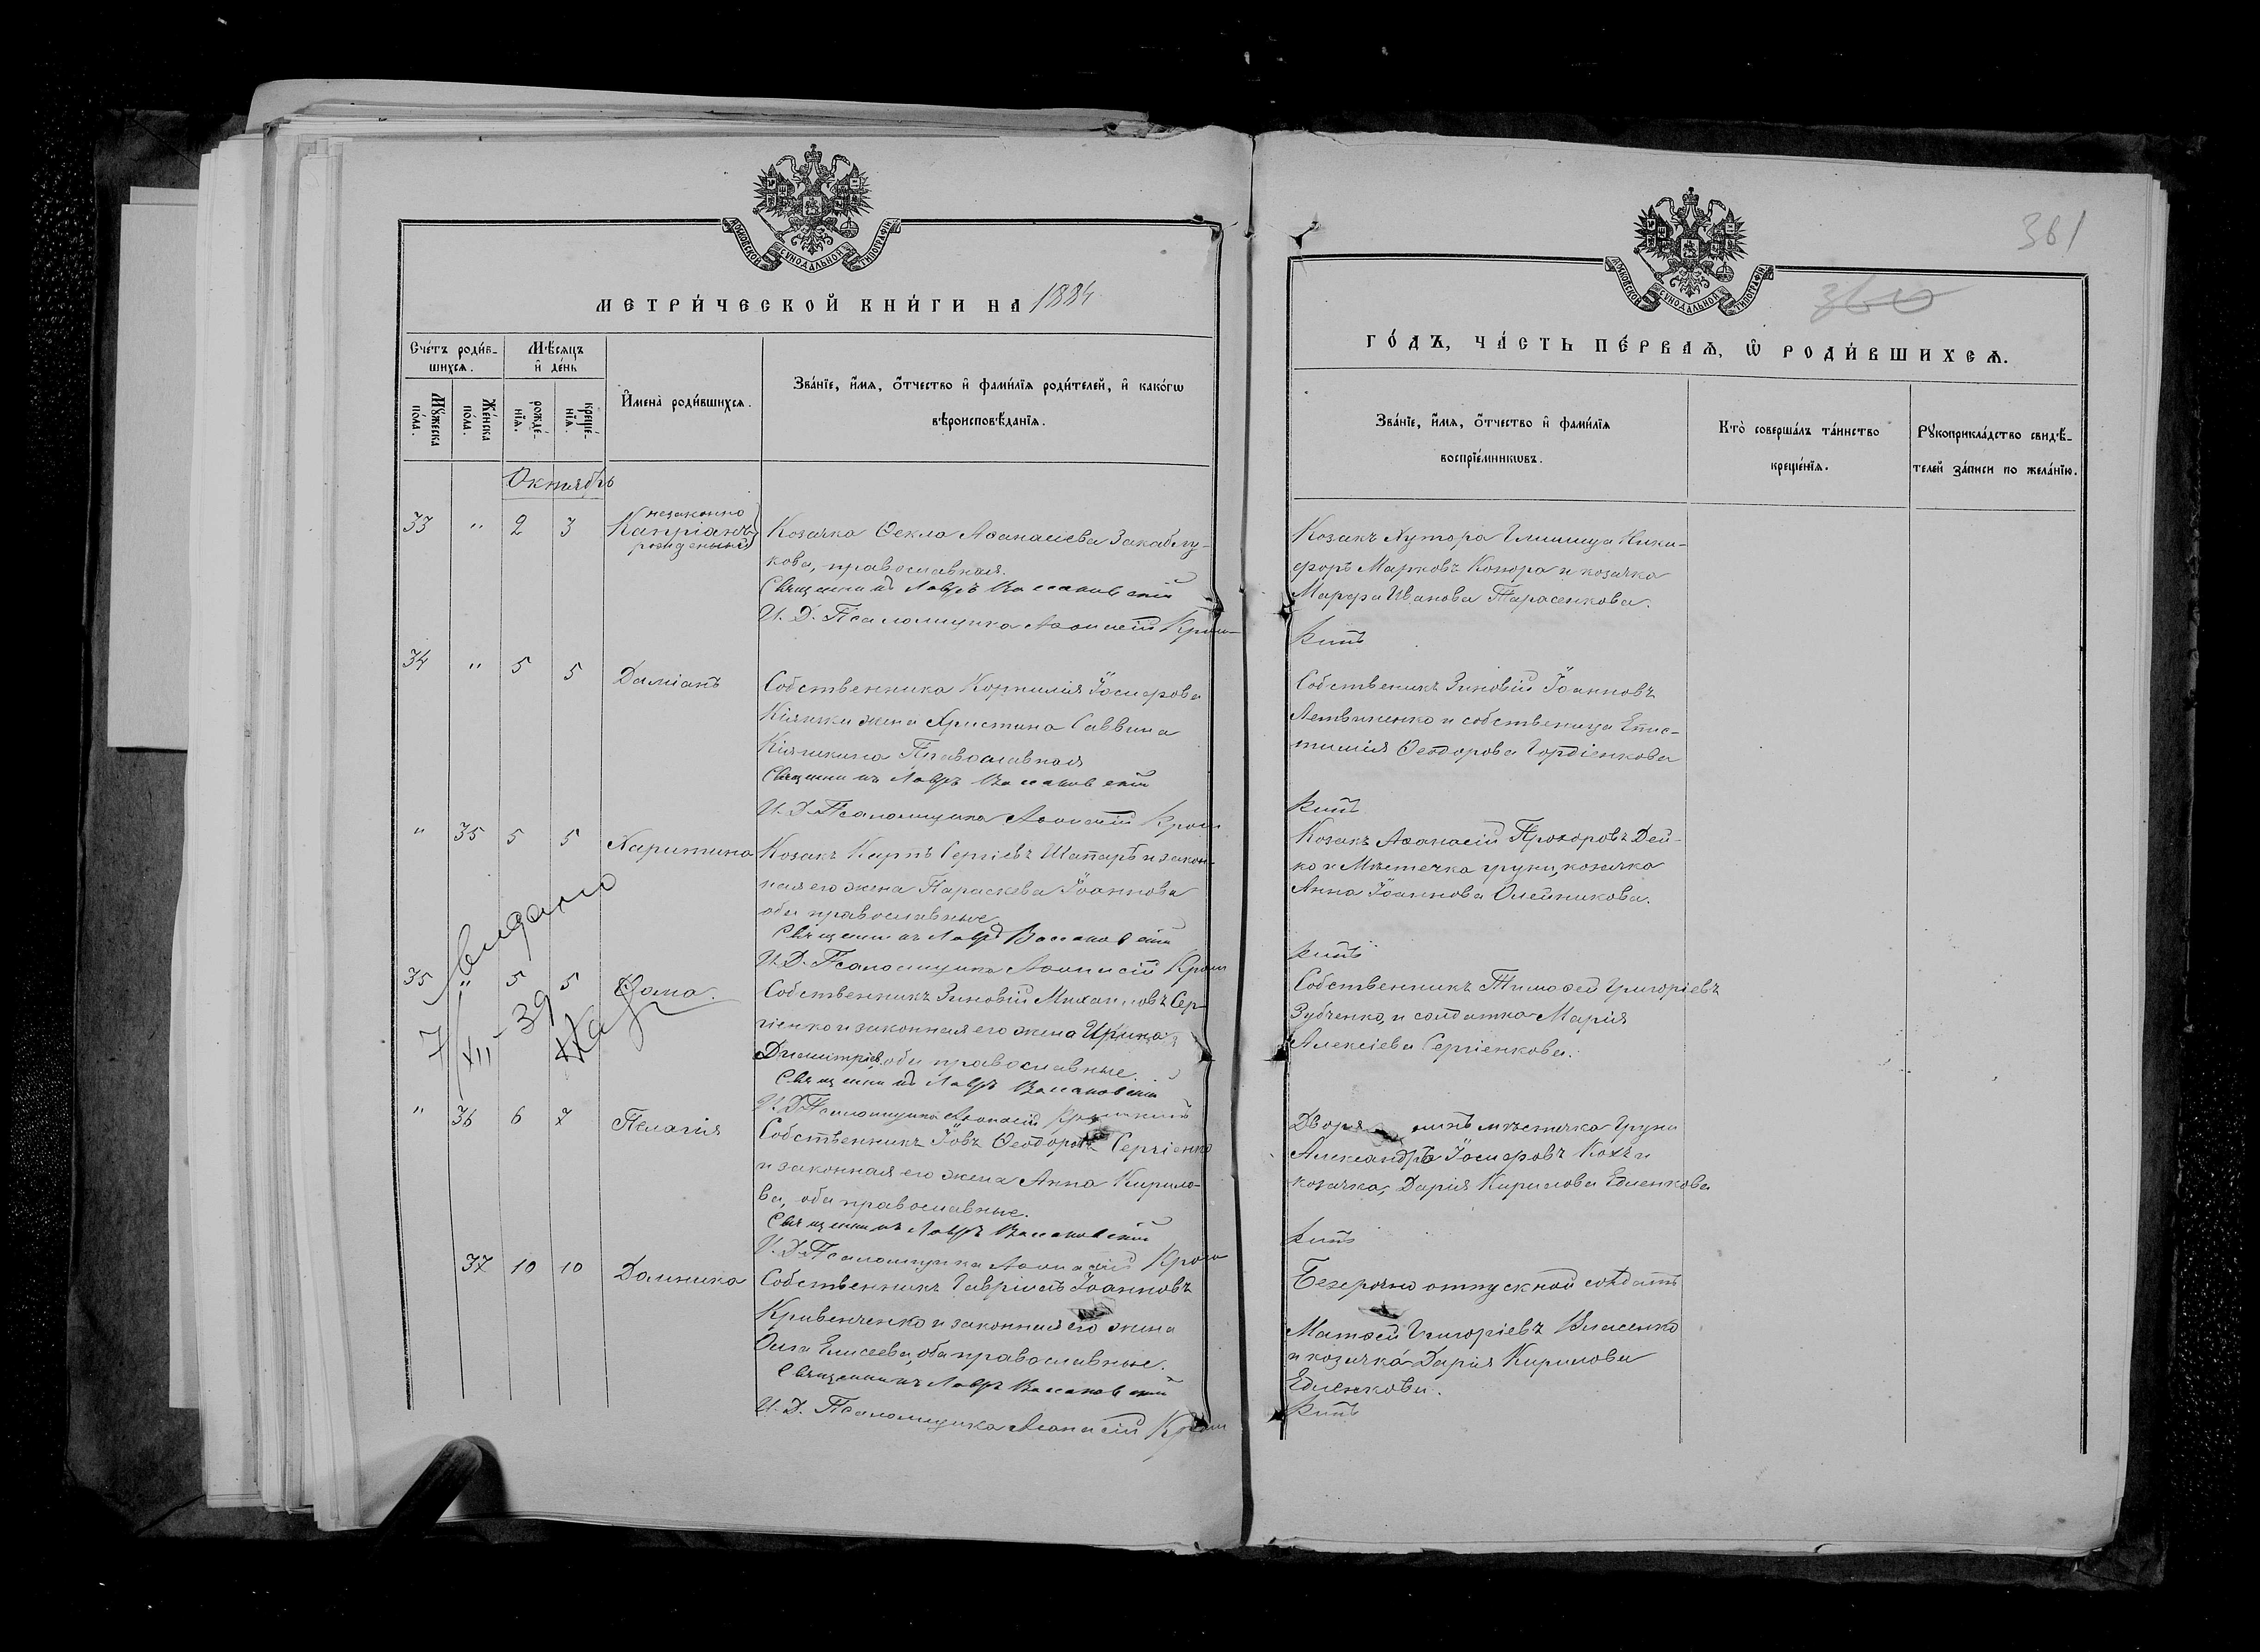 МОСКОВСКОЙ СѴНОДАЛЬНОЙ ТИПОГРАФІИ
МЕТРИ́ЧЕСКОЙ КНИ́ГИ НА 1884
Сче́тъ роди́в-
шихсѧ.
Мѣ́сѧцъ
и҆ де́нь
Мꙋ́жеска
по́ла.
Же́нска
по́ла.
рожде́-
нїѧ.
креще́-
нїѧ.
И҆мена̀ роди́вшихсѧ.
Зва́нїе, и҆́мѧ, ѻ҆́тчество и҆ фами́лїѧ роди́телей, и҆ како́гѡ
вѣроисповѣ́данїѧ.
Октябрь
33 " 2 3 незаконно
Капріанъ
рожденный
Козачка Ѳекла Аѳанасіева Закаблу-
кова, православная.
Священникъ Лавръ
И. Д. Псаломщика Аѳанасій Крам-
34 " 5 5 Даміанъ
Собственника Корнилія Іосифова
Кіяшки жена Христина Саввина
Кіяшкина Православная
Священникъ Лавръ
И. Д. Псаломщика Аѳанасій
" 35 5 5 Харитина
Козакъ Карпъ Сергіевъ Шапаръ и закон-
ная его жена Параскева Іоаннова
оба православные.
Священникъ Лавръ
И. Д. Псаломщика Аѳанасій
видано
35 " 5 5 Ѳома.
7/XII-39
Собственникъ Зиновій Михаиловъ Сер-
гіенко и законная его жена Ирина
Димитріев. оба православные.
Священникъ Лавръ
И. Д. Псаломщика Аѳанасій
" 36 6 7 Пелагія
Собственникъ Іовъ Ѳеодоровъ Сергіенко
и законная его жена Анна Кирило-
ва, оба православные.
Священникъ Лавръ
И. Д. Псаломщика Аѳанасій
37 10 10 Домника
Собственникъ Гавріилъ Іоанновъ
Кривенченко и законная его жена
Олга Елисеева, оба православные.
Священникъ Лавръ
И. Д. Псаломщика Аѳанасій
361
360
МОСКОВСКОЙ СѴНОДАЛЬНОЙ ТИПОГРАФІИ
ГО́ДЪ, ЧА́СТЬ ПЕ́РВАѦ, Ѡ҆ РОДИ́ВШИХСѦ.
Зва́нїе, и҆́мѧ, ѻ҆́тчество и҆ фами́лїѧ
воспрїе́мникѡвъ.
Кто̀ соверша́лъ та́инство
креще́нїѧ.
Рꙋкоприкла́дство свидѣ́-
телей за́писи по жела́нїю.
Козакъ Хутора Глинища Ники-
форъ Марковъ Конора и козачка
Марфа Иванова Тарасенкова.
Собственикъ Зиновій Іоанновъ
Летвиненко и собственица Епис-
тимія Ѳеодорова Гордіенкова
Козакъ Аѳанасій Прохоровъ Дей-
ко и Мѣстечка Груни, козачка
Анна Іоаннова Олейникова.
Собственникъ Тимоѳей Григоріевъ
Зубченко, и солдатка Марія
Алексіева Сергіенкова.
Дворянинъ мѣстечка Груни
Александръ Іосифовъ Кохъ и
козачка, Дарія Кирилова Едменкова
Безсрочно отпускной солдатъ
Матѳей Григоріевъ Власенко
и козачка Дарія Кирилова
Едменкова.